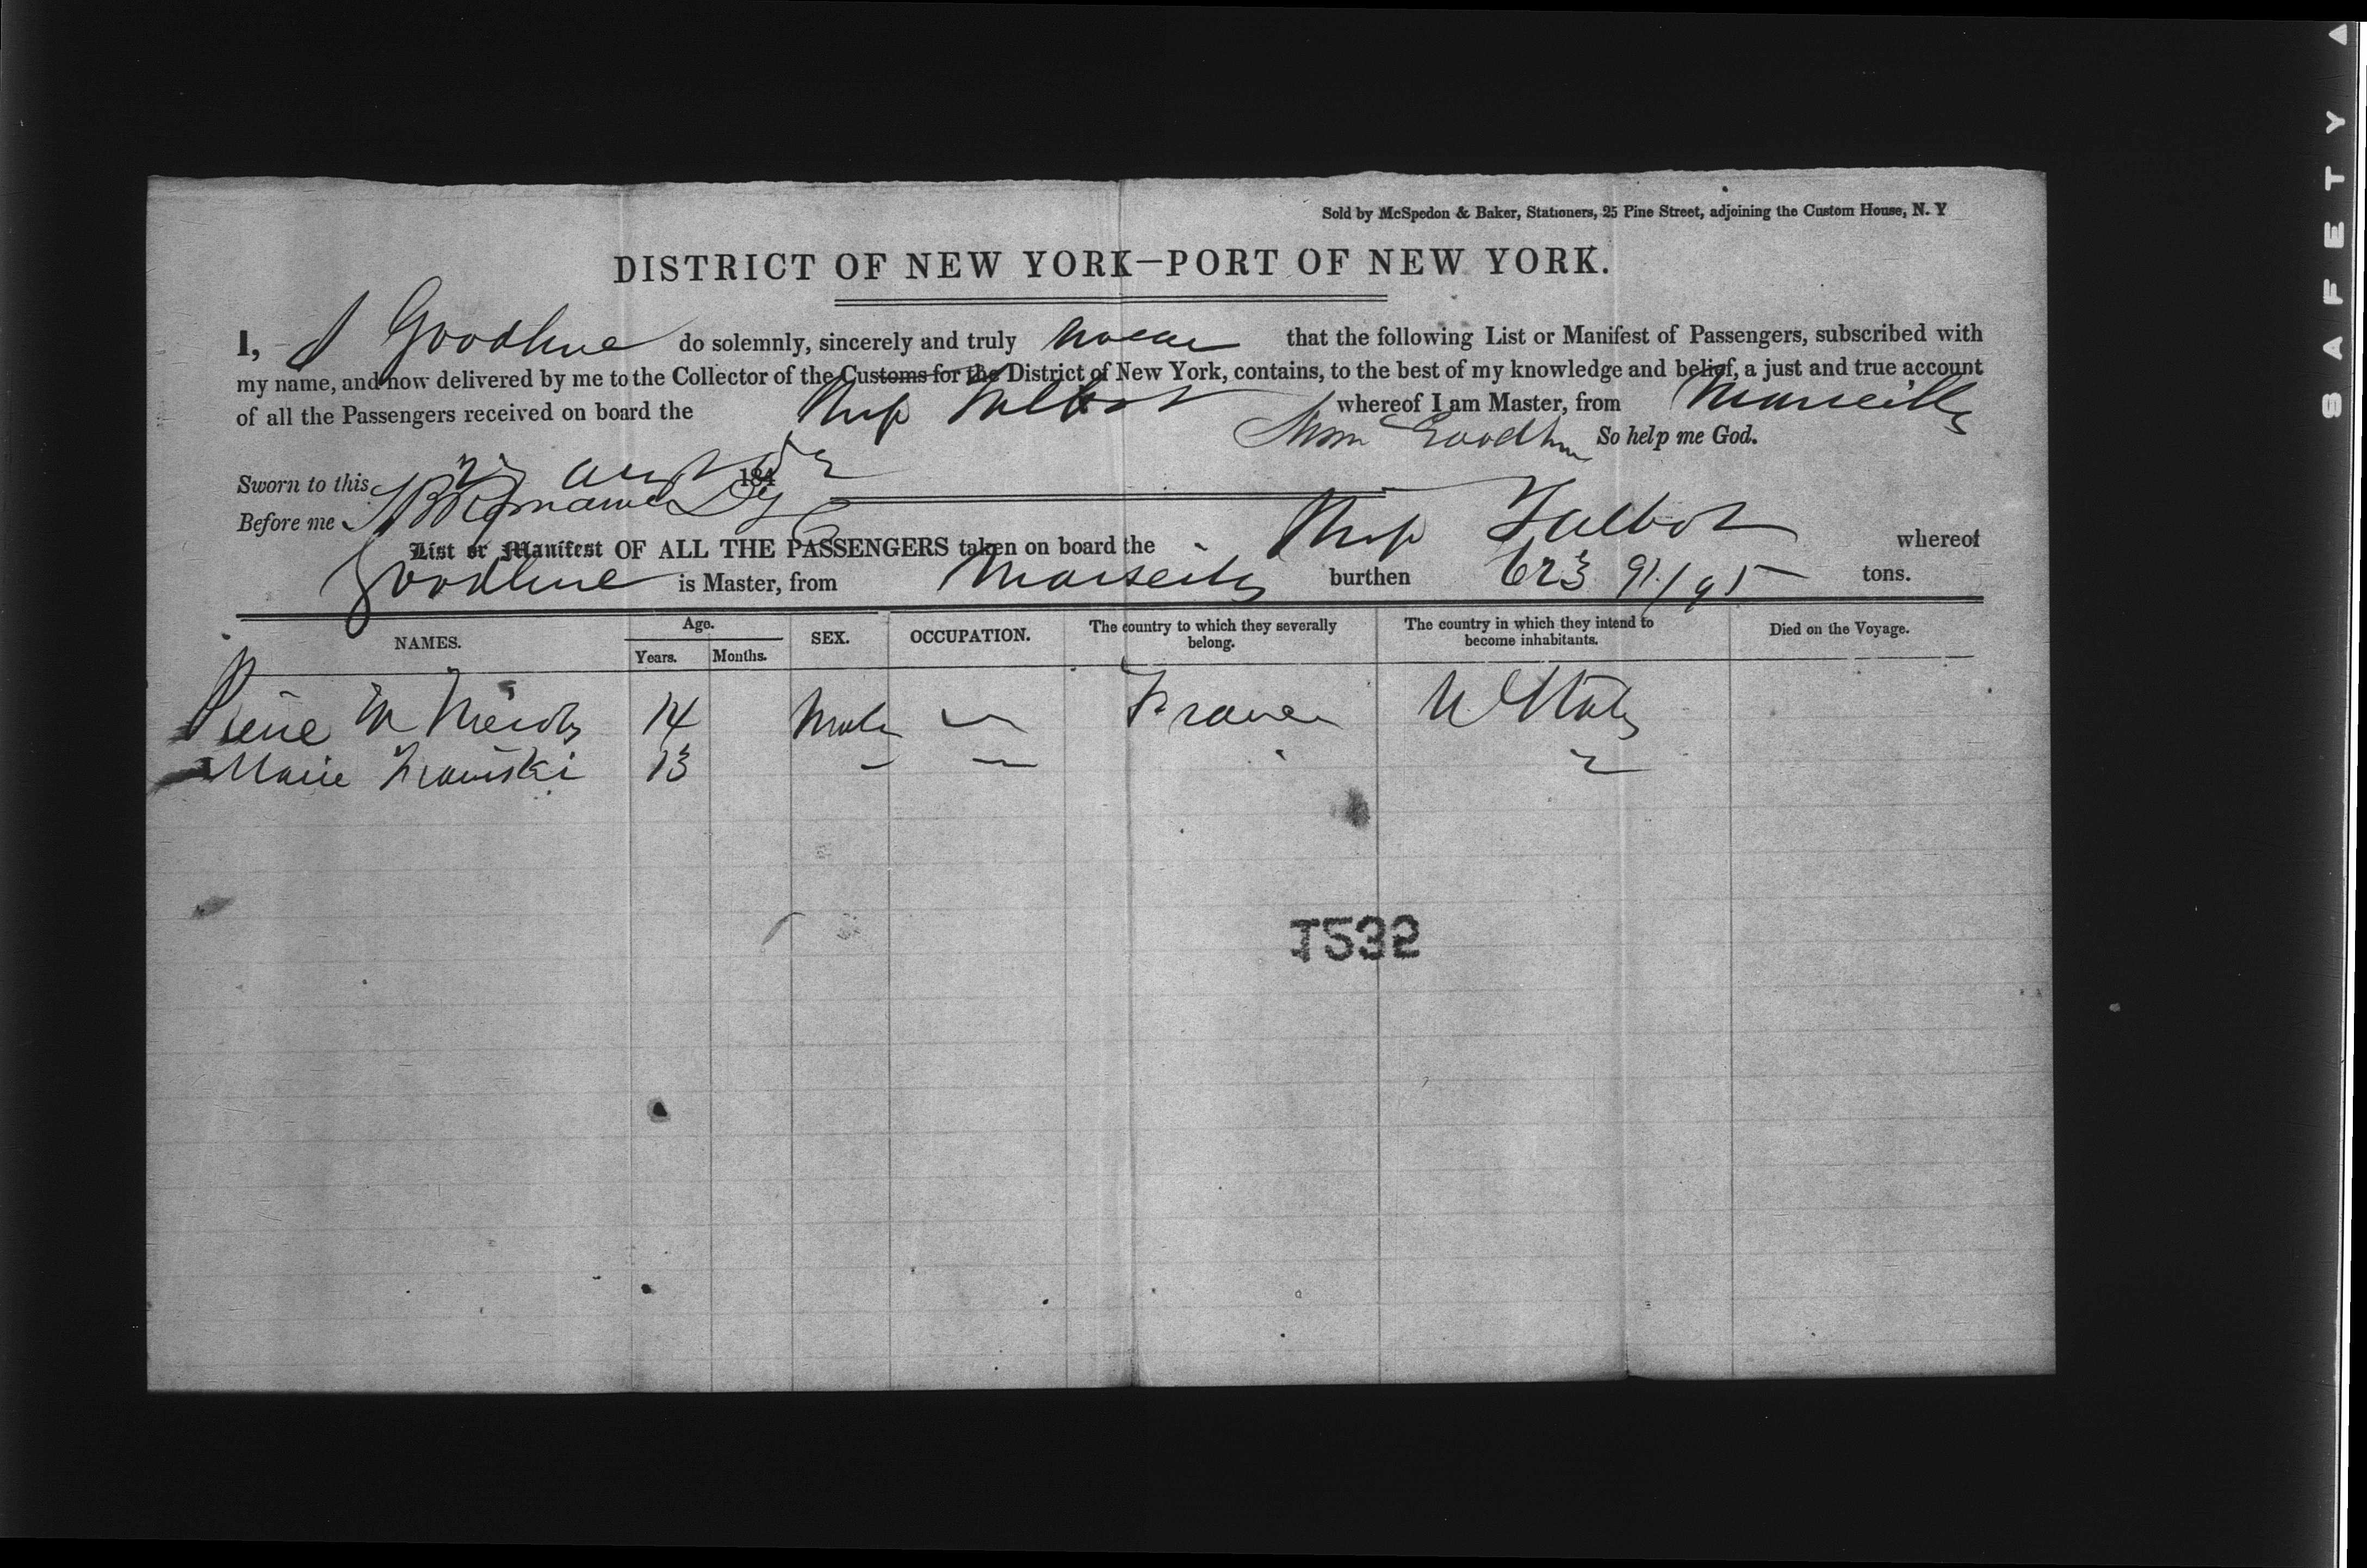 SAFETY
Sold by McSpedon & Baker, Stationers, 25 Pine Street, adjoining the Custom House, N. Y
DISTRICT OF NEW YORK—PORT OF NEW YORK.
I, Goodhue do solemnly, sincerely and truly swear that the following List or Manifest of Passengers, subscribed with
my name, and now delivered by me to the Collector of the Customs for the District of New York, contains, to the best of my knowledge and belief, a just and true account
of all the Passengers received on board the Ship Talbot whereof I am Master, from Marseilles
Goodhue So help me God.
Sworn to this Augt 184
Before me
List or Manifest OF ALL THE PASSENGERS taken on board the Ship Talbot whereof
Goodhue is Master, from Marseilles burthen 623 91/95 tons.
NAMES. Age. Years. Months. SEX. OCCUPATION. The country to which they severally belong. The country in which they intend to become inhabitants. Died on the Voyage.
Pierre 14 Male — France U States
Marie 13 — —
1232